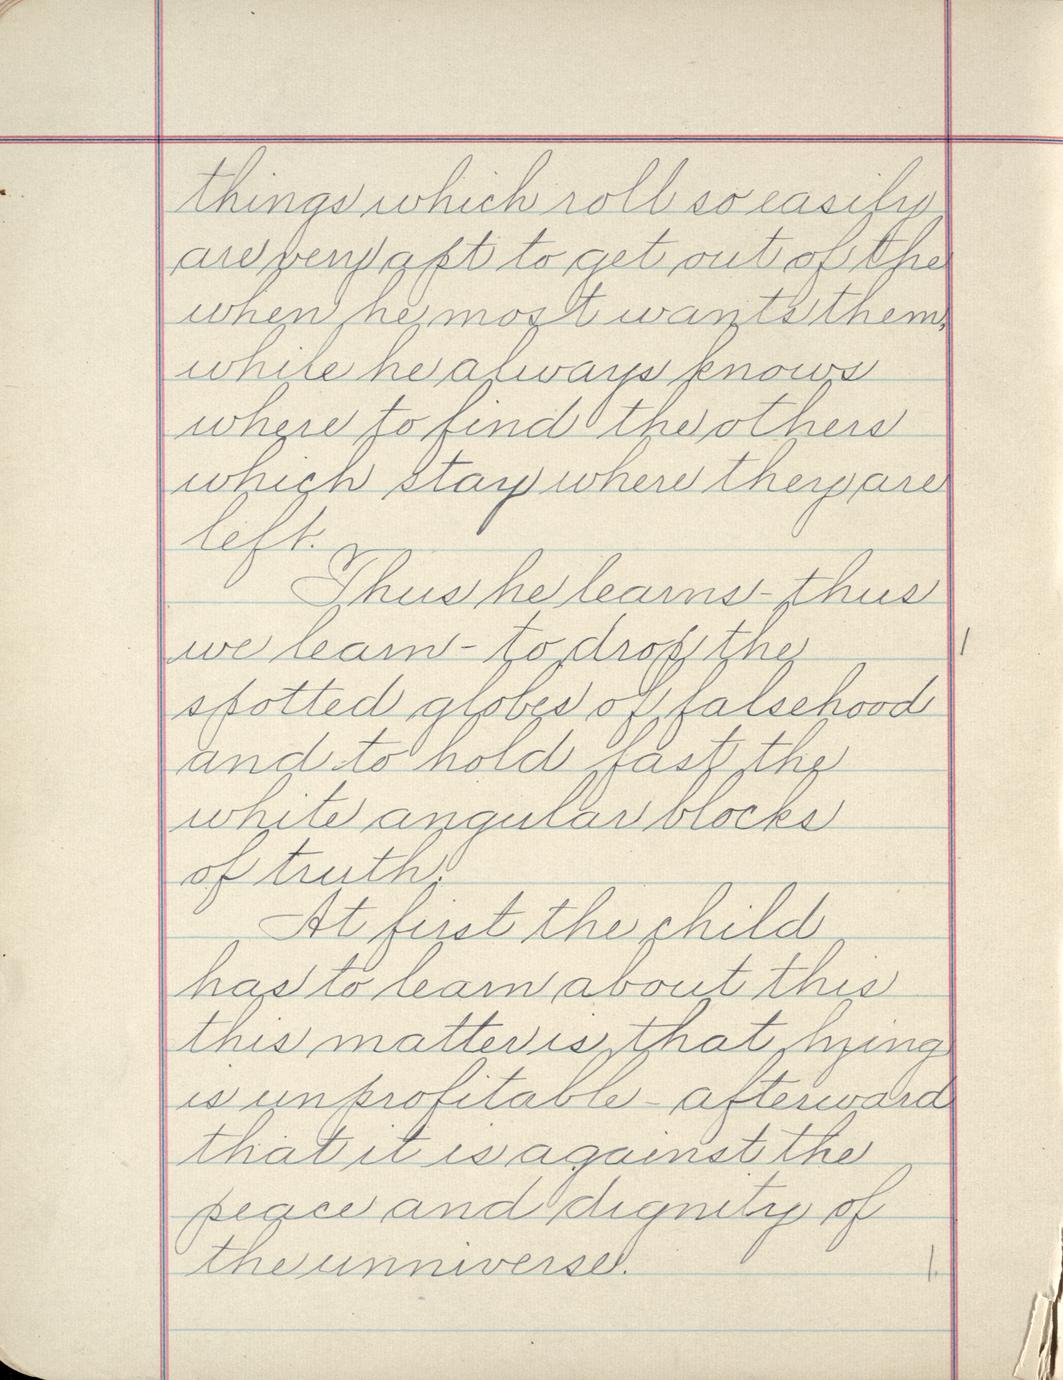 things which roll so easily
are very apt to get out of the
when he most wants them,
while he always knows
where to find the others
which stay where they are
left.
Thus he learns - thus
we learn - to drop the
spotted globes of falsehood
and to hold fast the
white angular blocks
of truth.
At first the child
has to learn about this
this matter is, that lying
is unprofitable - afterward
that it is against the
peace and dignity of
the unniverse.